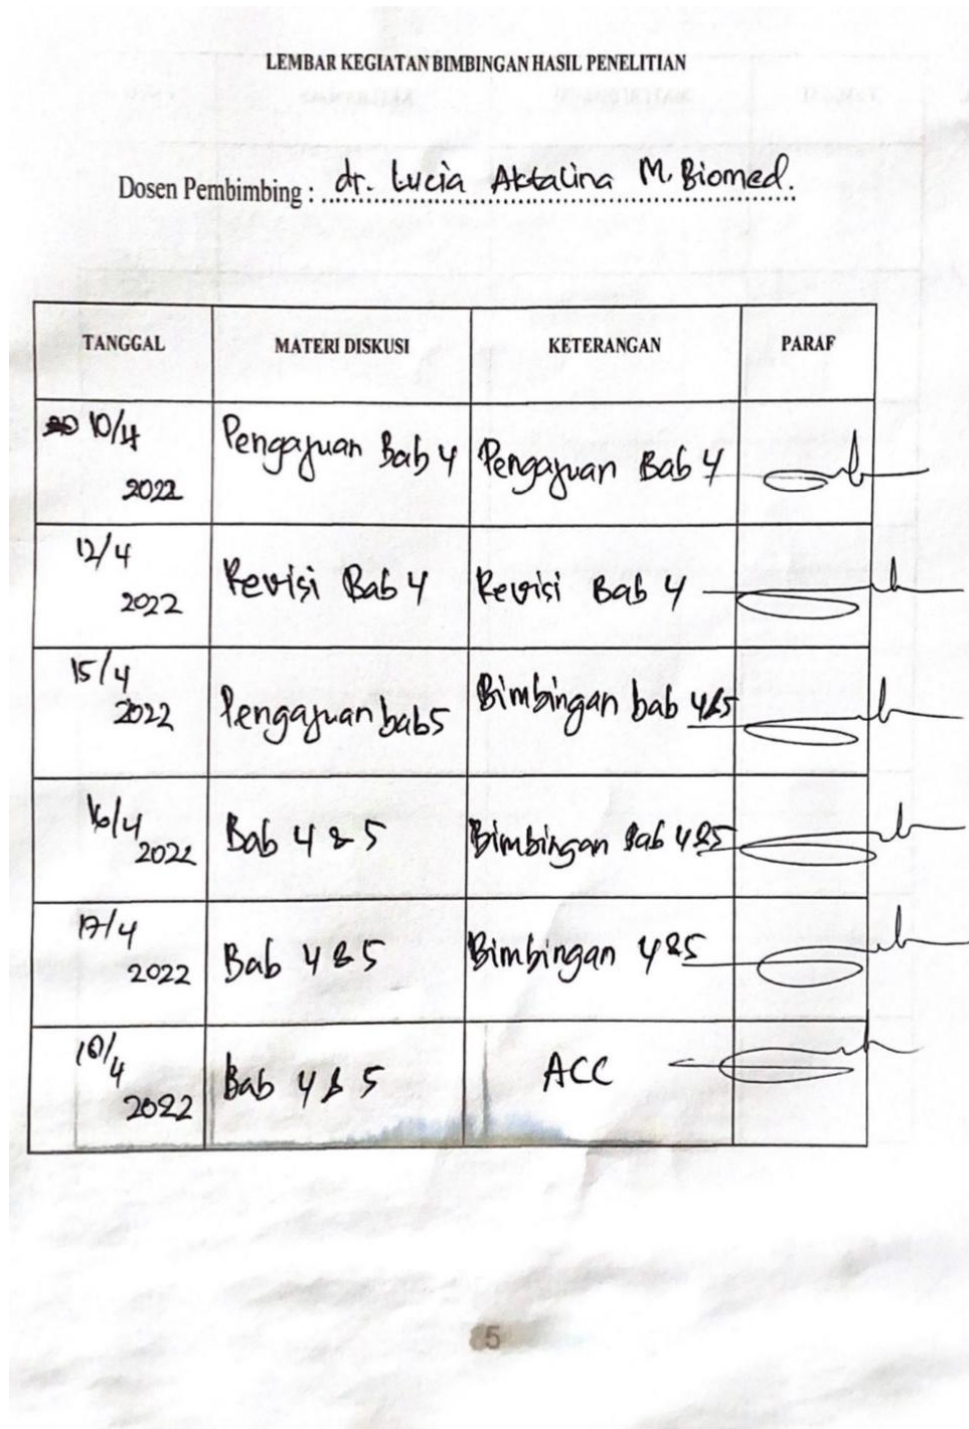 LEMBAR KEGIATAN BIMBINGAN HASIL PENELITIAN
Dosen Pembimbing : dr. Lucia Aktalina M. Biomed.
TANGGAL MATERI DISKUSI KETERANGAN PARAF
10/4 2022 Pengajuan Bab 4 Pengajuan Bab 4
12/4 2022 Revisi Bab 4 Revisi Bab 4
15/4 2022 Pengajuan bab 5 Bimbingan bab 4&5
16/4 2022 Bab 4 & 5 Bimbingan Bab 4&5
17/4 2022 Bab 4 & 5 Bimbingan 4&5
/4 2022 Bab 4 & 5 ACC
5